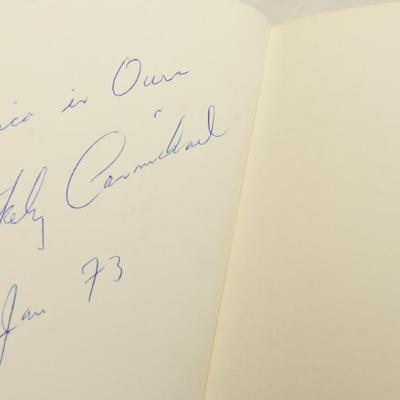 ica is Ours
kely Carmichael
Jan 73